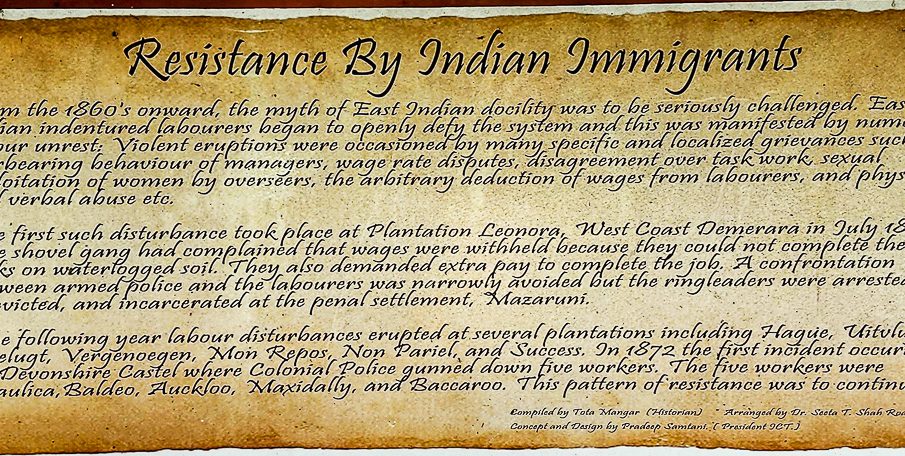 Resistance By Indian Immigrants
m the 1860's onward, the myth of East Indian docility was to be seriously challenged. Eas
ian indentured labourers began to openly defy the system and this was manifested by num
our unrest. Violent eruptions were occasioned by many specific and localized grievances suc
bearing behaviour of managers, wage rate disputes, disagreement over task work, sexual
oitation of women by overseers, the arbitrary deduction of wages from labourers, and phys
verbal abuse etc.
e first such disturbance took place at Plantation Leonora, West Coast Demerara in July 18
e shovel gang had complained that wages were withheld because they could not complete the
ks on waterlogged soil. They also demanded extra pay to complete the job. A confrontation
ween armed police and the labourers was narrowly avoided but the ringleaders were arrested
victed, and incarcerated at the penal settlement, Mazaruni.
e following year labour disturbances erupted at several plantations including Hague, Uitvlu
elugt, Vergenoegen, Mon Repos, Non Pariel, and Success. In 1872 the first incident occur
Devonshire Castel where Colonial Police gunned down five workers. The five workers were
aulica, Baldeo, Auckloo, Maxidally, and Baccaroo. This pattern of resistance was to continu
Compiled by Tota Mangar (Historian) Arranged by Dr. Seeta T. Shah Roa
Concept and Design by Pradeep Samtani. ( President ICT.)